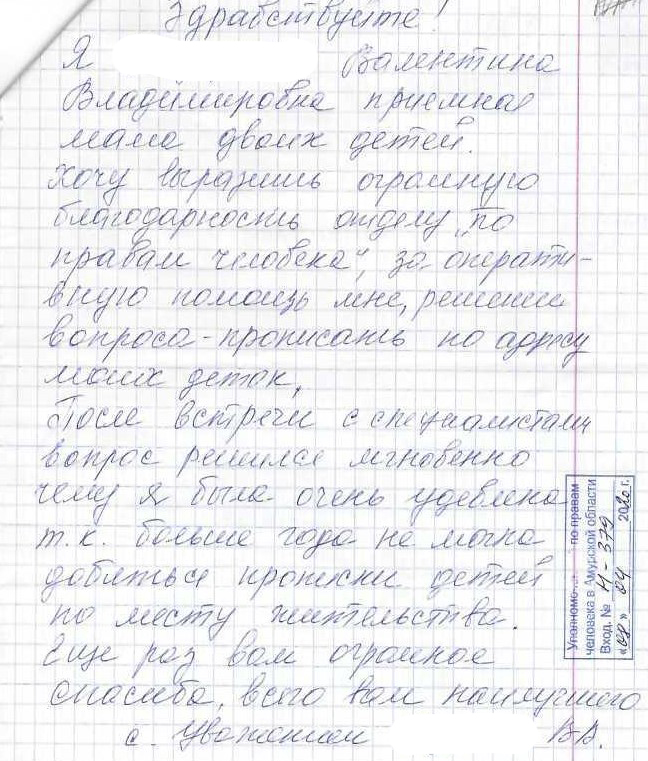 Здравствуйте!
Я Валентина
Владимировна приемная
мама двоих детей.
Хочу выразить огромную
благодарность отделу „по
правам человека", за операти-
вную помощь мне, решении
вопроса - прописать по адресу
моих деток,
После встречи с специалистами
вопрос решился мгновенно
чему я была очень удевлена
т.к. больше года не могла
добиться прописки детей
по месту жительства.
Еще раз вам огромное
спасибо, всего вам наилучшего
с. Уважением В.В.
Уполномо по правам
человека в Амурской области
Вход. № Н - 379
«08» 04 2020 г.